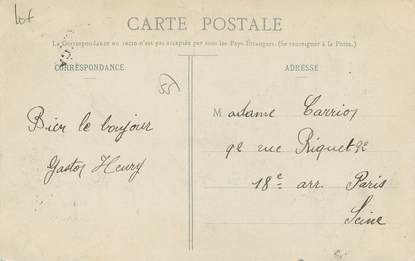 Lot
CARTE POSTALE
La Correspondance au recto n'est pas acceptée par tous les Pays Étrangers. (Se renseigner à la Poste.)
CORRESPONDANCE
ADRESSE
55
Bien le bonjour
Gaston Henry
Madame Carrion
92 rue Riquet 92
18e arr. Paris
Seine